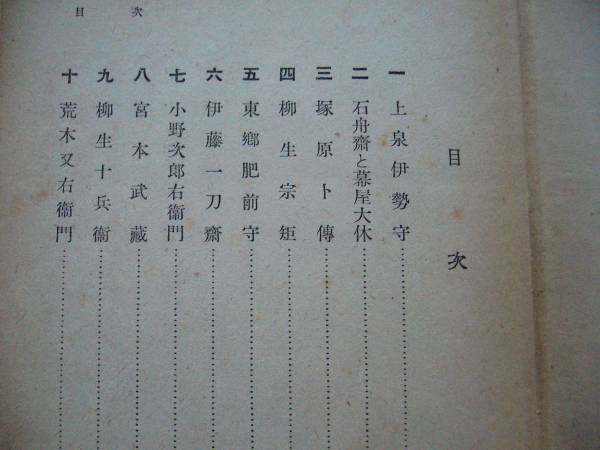 目次
目次
一 上泉伊勢守
二 石舟齋と幕屋大休
三 塚原卜傳
四 柳生宗矩
五 東鄕肥前守
六 伊藤一刀齋
七 小野次郎右衞門
八 宮本武藏
九 柳生十兵衞
十 荒木又右衞門